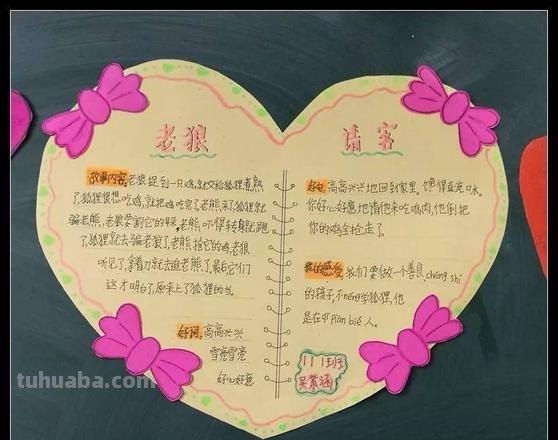 老狼 请客
故事内容:老狼捉到一只鸡,就交给狐狸煮熟
了,狐狸很想吃鸡,就把鸡吃完了,老熊来了,狐狸就
骗老熊,老狼要割它的耳朵,老熊吓得转身就跑
了,狐狸就去骗老狼了,老熊抢它的鸡,老狼
听见了,拿着刀就去追老熊了,最后它们
这才明白了,原来上了狐狸的当。
好词:高高兴兴
雪亮雪亮
好心好意
好句:高高兴兴地回到家里。馋得直流口水。
你好心好意地请他来吃鸡肉,他倒把
你的鸡全抢走了。
我的感受:我们要做一个善良、chéng shí
的孩子,不néng学狐狸,他
是在 piàn bié 人。
吴紫涵
tuhuaba.com